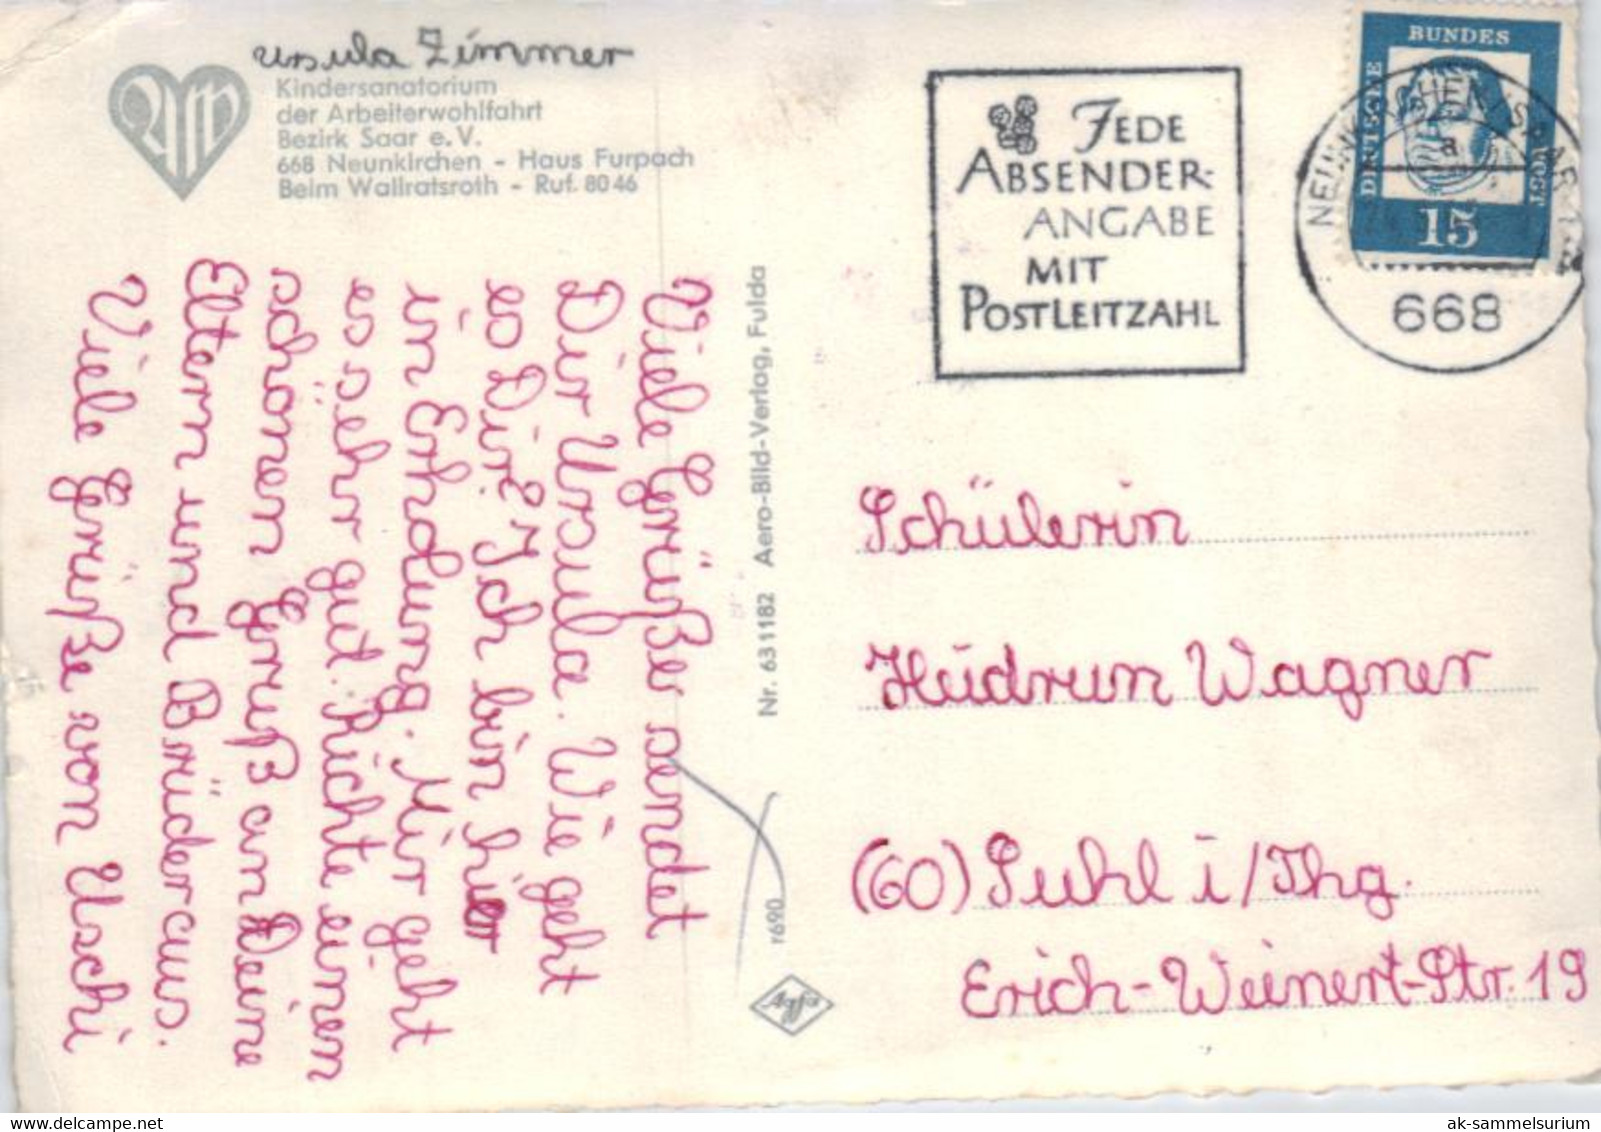 Ursula Zimmer
Kindersanatorium
der Arbeiterwohlfahrt
Bezirk Saar e.V.
668 Neunkirchen - Haus Furpach
Beim Wallratsroth - Ruf. 80 46
Viele Grüße sendet
Dir Ursula. Wie geht
es Dir? Ich bin hier
in Erhdung. Mir geht
es sehr gut. Richte einen
schönen Gruß an Deine
Eltern und Brüder aus.
Viele Grüße von Uschi
Nr. 63 1182 Aero-Bild-Verlag, Fulda
r690
Agfa
JEDE
ABSENDER-
ANGABE
MIT
POSTLEITZAHL
DEUTSCHE
BUNDES
POST
15
NEUNKIRCHEN (SAAR) 1
a
668
Schülerin
Heidrun Wagner
(60) Suhl i/Thg.
Erich-Weinert-Str. 19
ak-sammelsurium